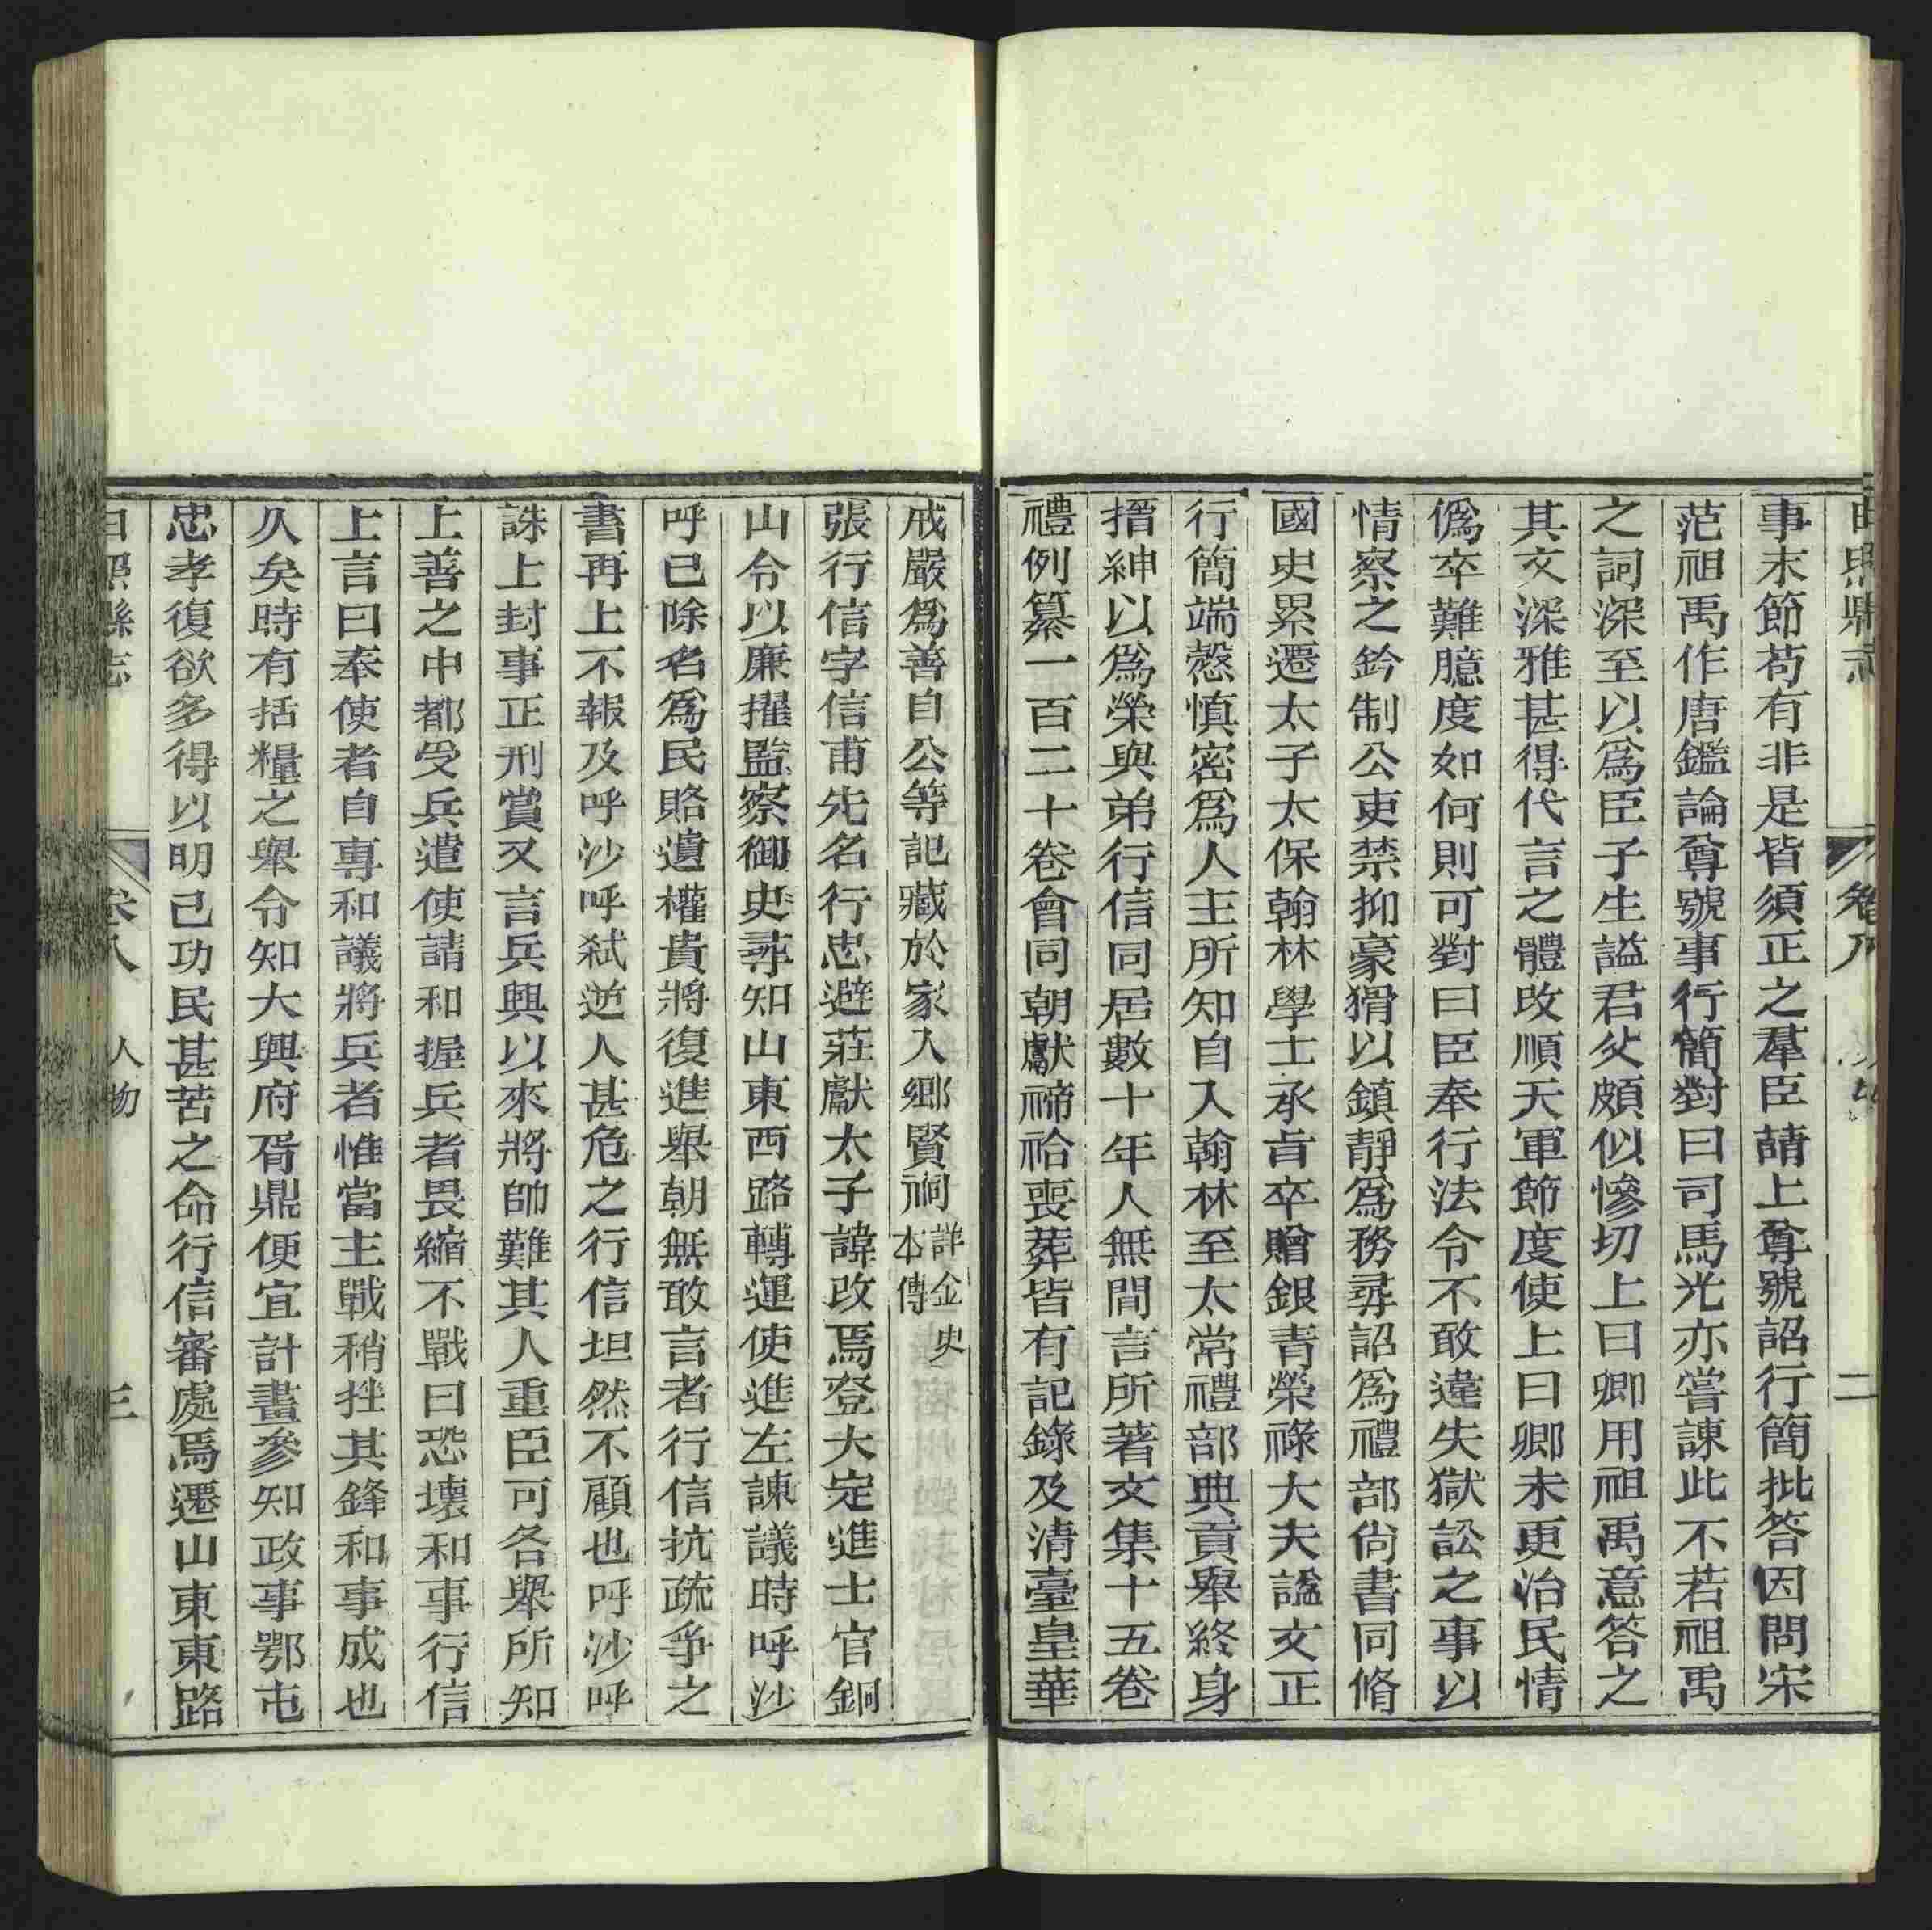 日照縣志
卷八
二
事末節苟有非是皆須正之羣臣請上尊號詔行簡批答因問宋
范祖禹作唐鑑論尊號事行簡對曰司馬光亦嘗諫此不若祖禹
之詞深至以爲臣子生謚君父頗似慘切上曰卿用祖禹意答之
其文深雅甚得代言之體改順天軍節度使上曰卿未更治民情
僞卒難臆度如何則可對曰臣奉行法令不敢違失獄訟之事以
情察之鈐制公吏禁抑豪猾以鎮靜爲務尋詔爲禮部尙書同脩
國史累遷太子太保翰林學士承旨卒贈銀青榮祿大夫謚文正
行簡端慤慎密爲人主所知自入翰林至太常禮部典貢舉終身
搢紳以爲榮與弟行信同居數十年人無間言所著文集十五卷
禮例纂一百二十卷會同朝獻禘祫喪葬皆有記錄及清臺皇華
戒嚴爲善自公等記藏於家入鄉賢祠詳金史本傳
張行信字信甫先名行忠避莊獻太子諱改焉登大定進士官銅
山令以廉擢監察御史尋知山東西路轉運使進左諫議時呼沙
呼已除名爲民賂遺權貴將復進舉朝無敢言者行信抗疏爭之
書再上不報及呼沙呼弑逆人甚危之行信坦然不顧也呼沙呼
誅上封事正刑賞又言兵興以來將帥難其人重臣可各舉所知
上善之中都受兵遣使請和握兵者畏縮不戰曰恐壞和事行信
上言曰奉使者自專和議將兵者惟當主戰稍挫其鋒和事成也
久矣時有括糧之舉令知大興府胥鼎便宜計畫參知政事鄂屯
忠孝復欲多得以明己功民甚苦之命行信審處焉遷山東東路
日照縣志
卷八
人物
三